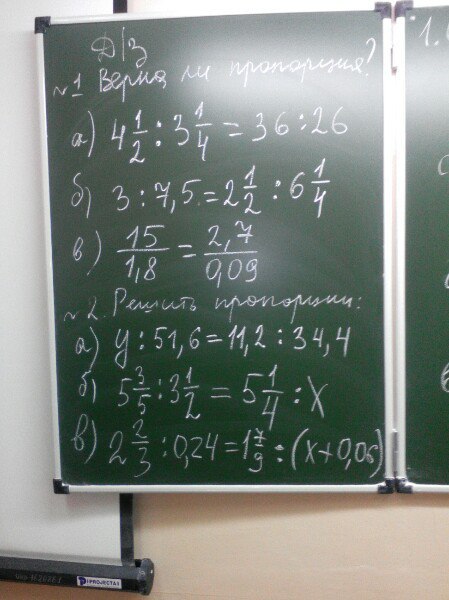 Д/З
№1 Верна ли пропорция?
а) 4 1/2 : 3 1/4 = 36 : 26
б) 3 : 7,5 = 2 1/2 : 6 1/4
в) 15/1,8 = 2,7/0,09
№2. Решить пропорции:
а) y : 51,6 = 11,2 : 34,4
б) 5 3/5 : 3 1/2 = 5 1/4 : x
в) 2 2/3 : 0,24 = 1 7/9 : (x + 0,06)
1.
PROJECTA